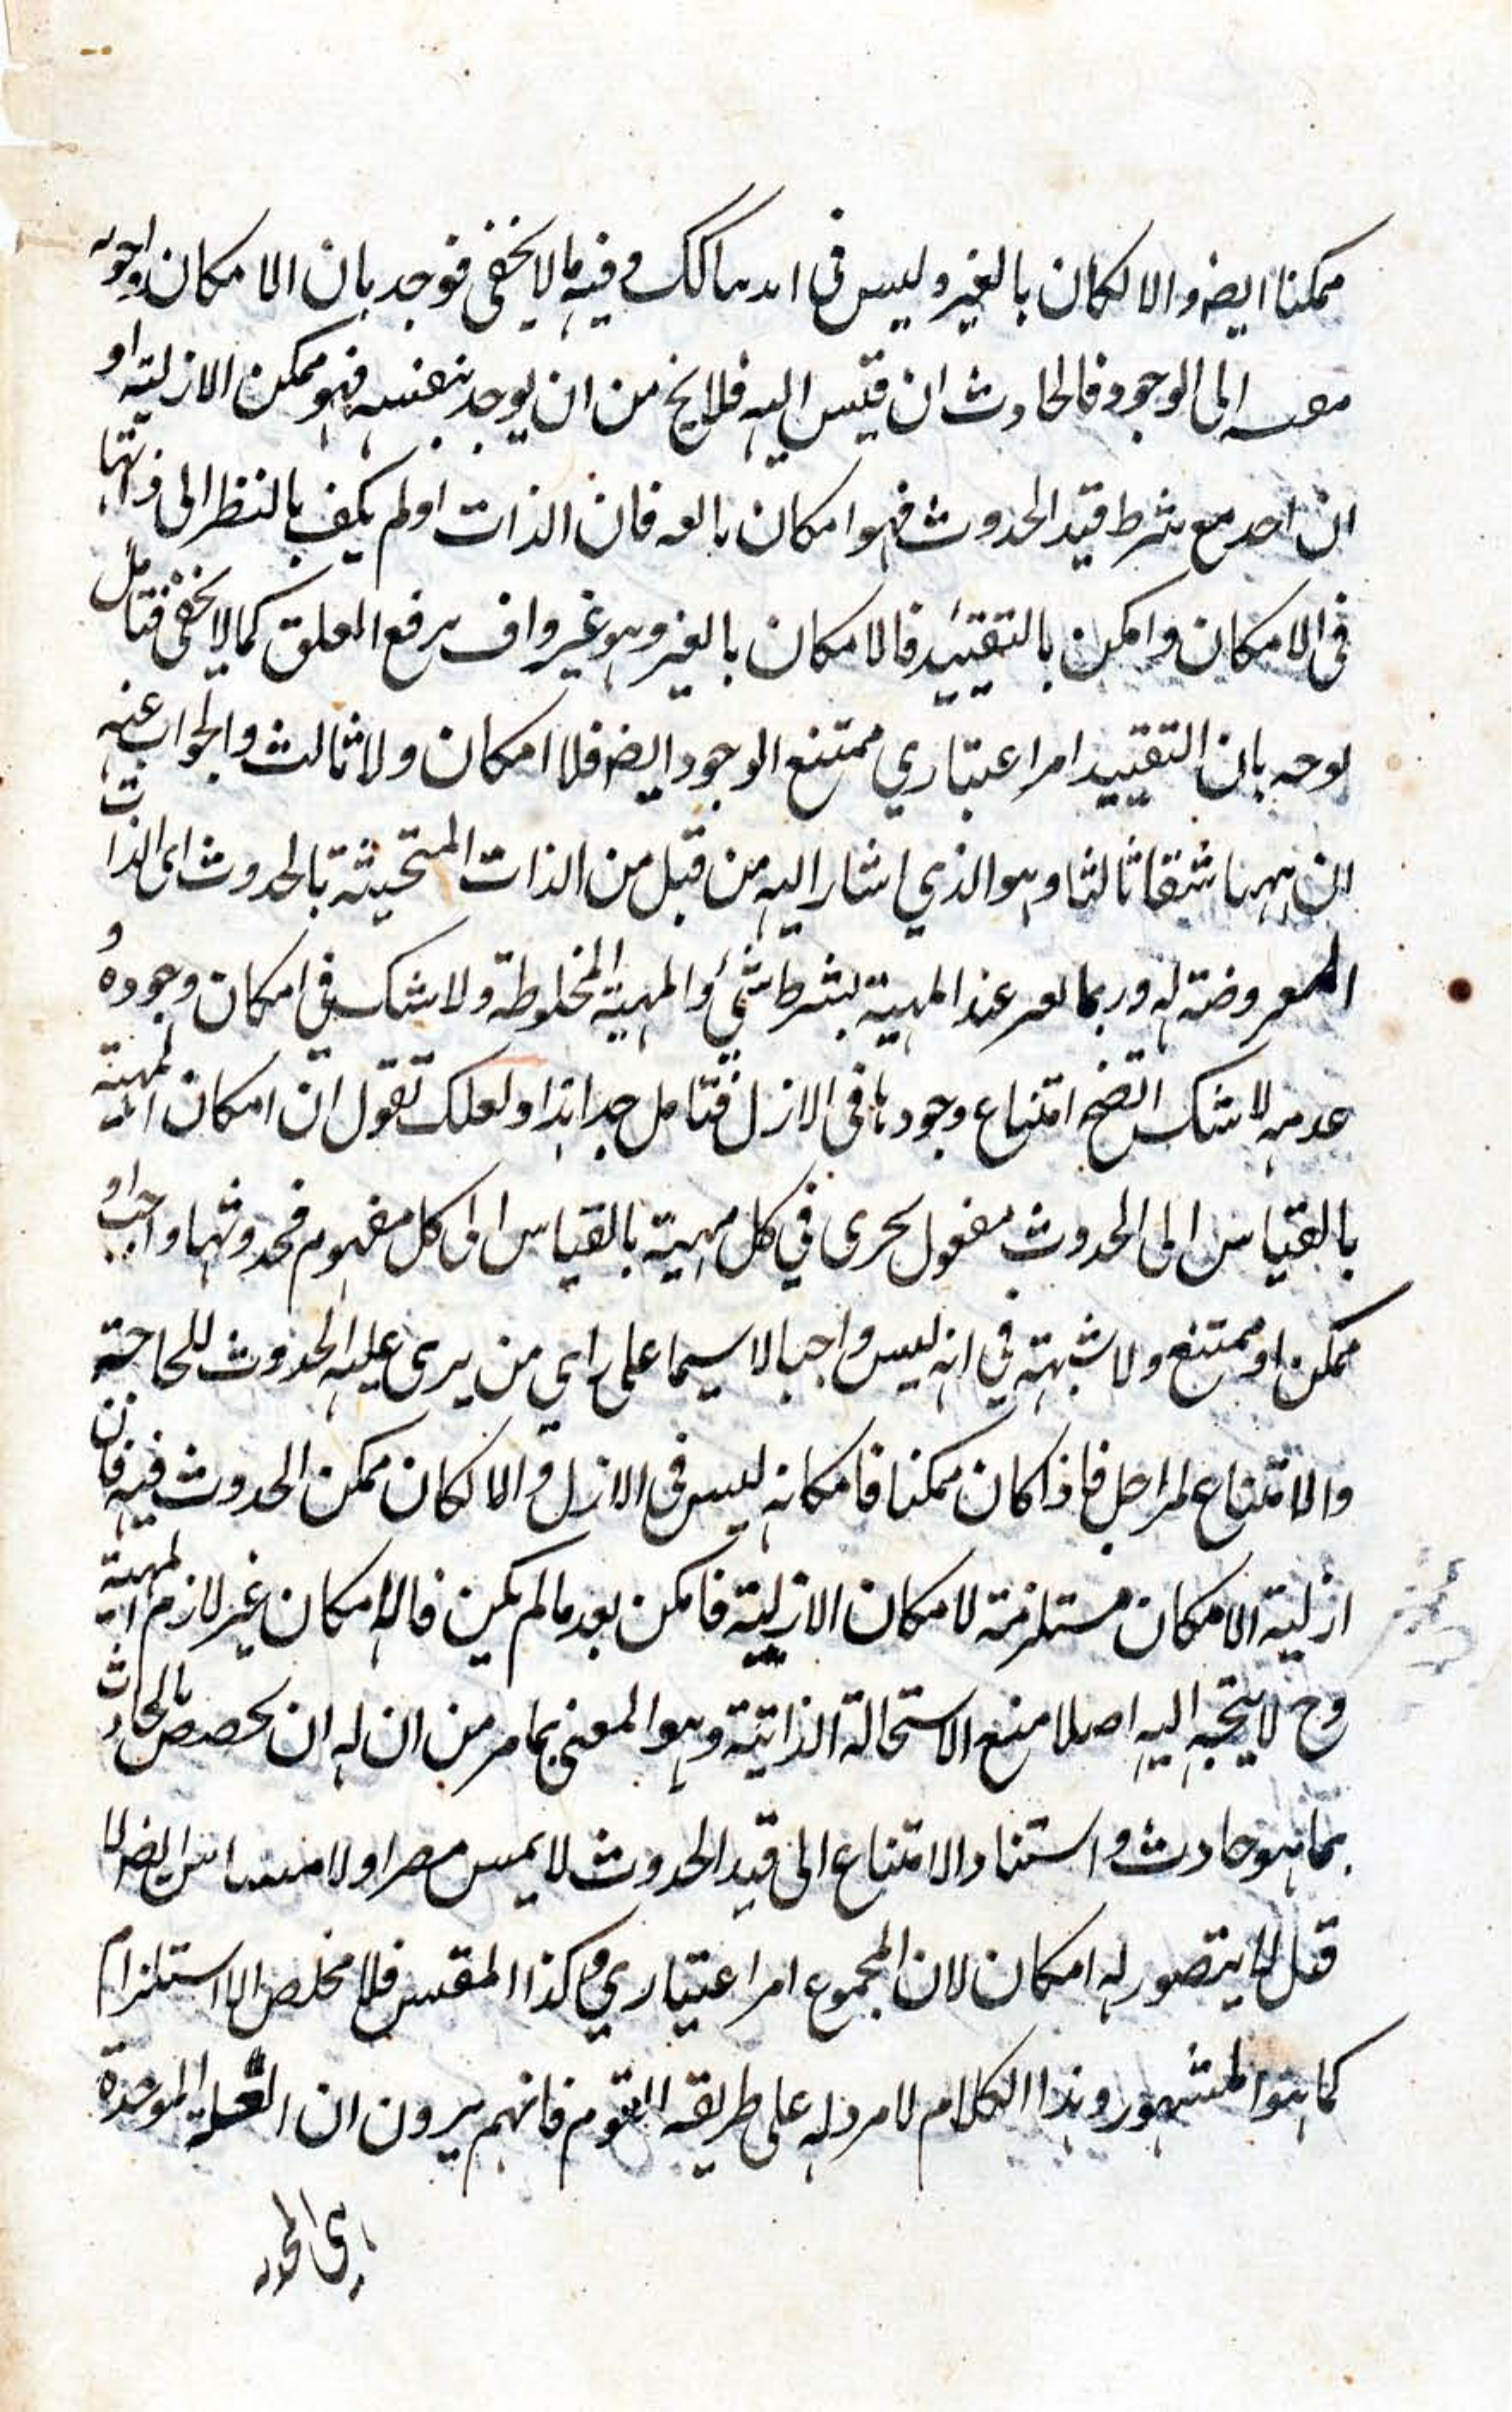 ممكنا ايضہ والا لكان بالغير وليس في وفيه ما لا يخفى فوجد بان الامكان
الى الوجود فالحادث ان قيس اليه فلا يخ من ان يوجد بنفسه فهو ممكن الازلية او
ان احد مع شرط قيد الحدوث فهو امكان فان الذات او لم يكف بالنظر الى ذاتها
في الامكان وامكن بالتقييد فالامكان بالغير وهو غير واف برفع المعلق كما لا يخفى فتامل
بوجه بان التقييد امر اعتباري ممتنع الوجود ايضہ فلا امكان ولا ثالث والجواب عنه
ان ههنا شقا ثالثا وهو الذي اشار اليه من قبل من الذات المتحيثة بالحدوث اى الذات
المعروضة له وربما المهية بشرط شئ والمهية المخلوطة ولا شك في امكان وجوده و
عدمه لا شك اتضح امتناع وجودها في الازل فتامل جدا هذا ولعلك تقول ان امكان المهية
بالقياس الى الحدوث يجرى في كل مهية بالقياس الى كل مفهوم فحدوثها واجب او
ممكن او ممتنع ولا شبهة في انه ليس واجبا لا سيما على راي من يرى علية الحدوث للحاجة
والامتناع فاذا كان ممكنا فامكانه ليس في الازل والا لكان ممكن الحدوث فيه فان
ازلية الامكان مستلزمة لامكان الازلية فامكن بعد ما لم يكن فالامكان غير لازم المهية
وح لا يتجه اليه اصلا منع الاستحالة الذاتية وهو المعنى بما مر من ان له ان بالحادث
بما هو حادث واستناد الامتناع الى قيد الحدوث لا يمس ولا
لا يتصور له امكان لان المجموع امر اعتباري وكذا فلا مخلص الا استلزام
كما هو المشهور وهذا الكلام لا مرد له على طريقة القوم فانهم يرون ان العلة الموجدة